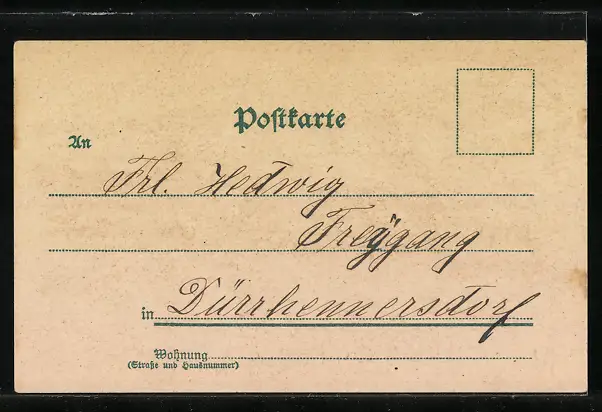 Postkarte
An
Frl. Hedwig
Freÿgang
in Dürrhennersdorf
Wohnung
(Straße und Hausnummer)